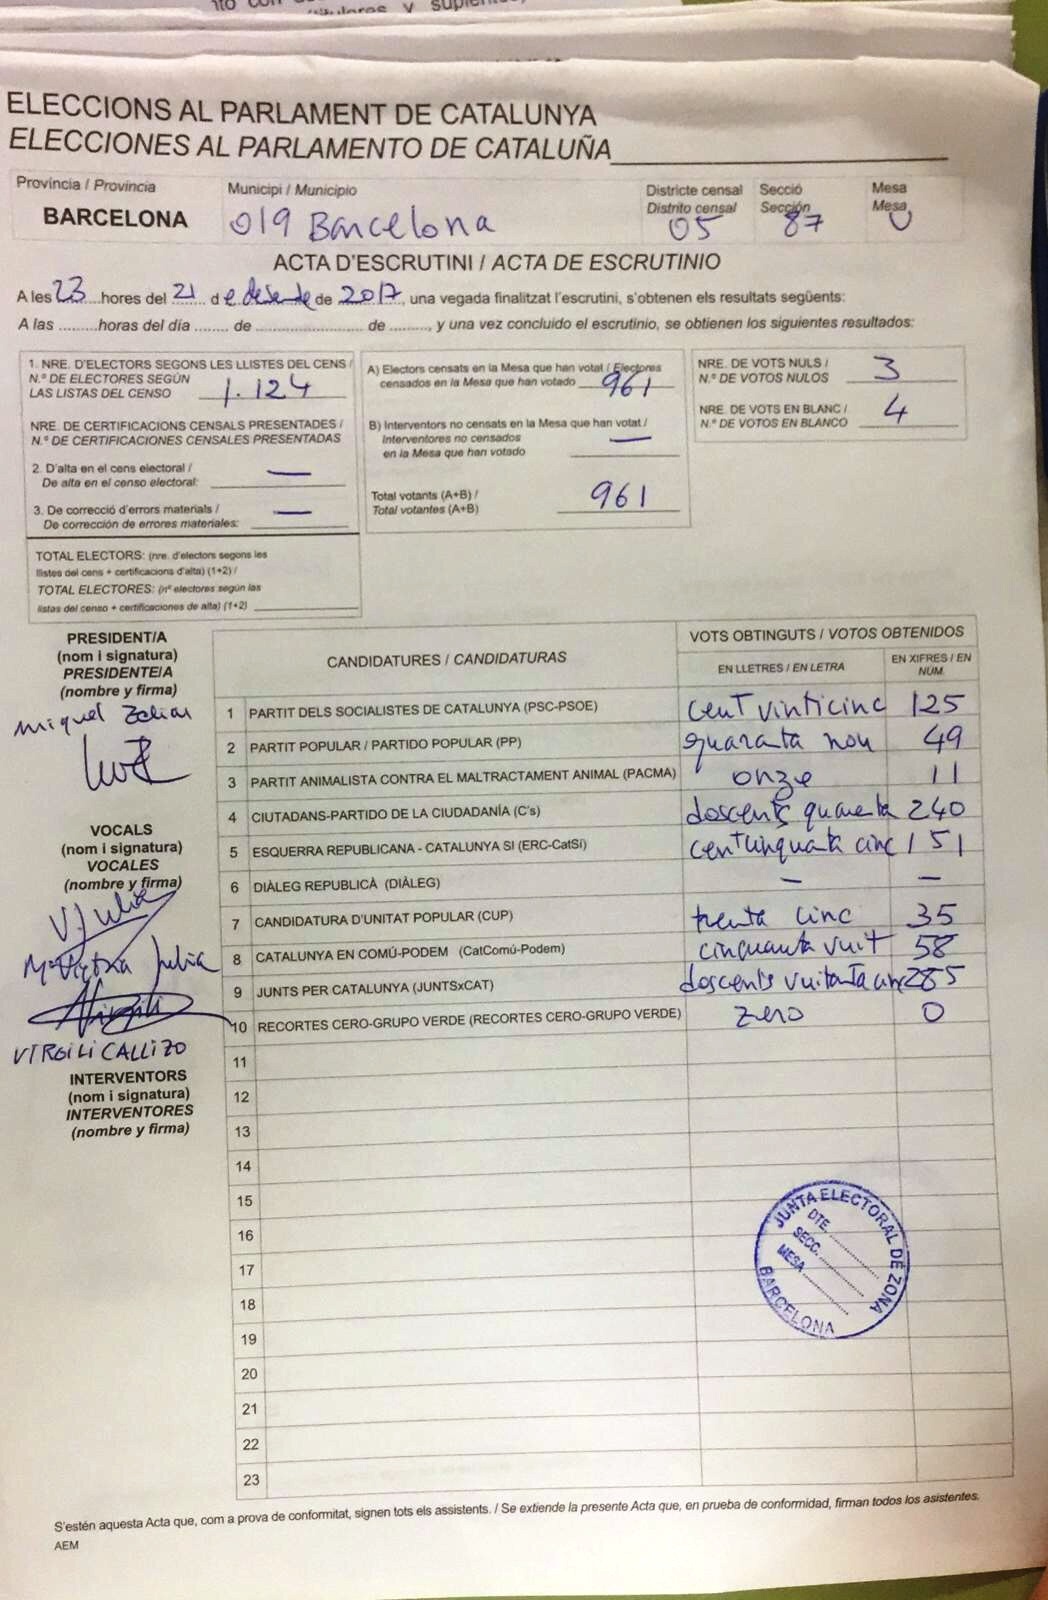 ELECCIONS AL PARLAMENT DE CATALUNYA
ELECCIONES AL PARLAMENTO DE CATALUÑA
Província / Provincia
Municipi / Municipio
Districte censal
Secció
Mesa
Distrito censal
Sección
Mesa
BARCELONA
019 Barcelona
05
87
U
ACTA D'ESCRUTINI / ACTA DE ESCRUTINIO
A les 23 hores del 21 de desembre de 2017, una vegada finalitzat l'escrutini, s'obtenen els resultats següents:
A las .........horas del día ........ de ........................ de ........., y una vez concluido el escrutinio, se obtienen los siguientes resultados:
1. NRE. D'ELECTORS SEGONS LES LLISTES DEL CENS /
N.º DE ELECTORES SEGÚN
LAS LISTAS DEL CENSO 1.124
NRE. DE CERTIFICACIONS CENSALS PRESENTADES /
N.º DE CERTIFICACIONES CENSALES PRESENTADAS
2. D'alta en el cens electoral / —
De alta en el censo electoral:
3. De correcció d'errors materials / —
De corrección de errores materiales:
TOTAL ELECTORS: (nre. d'electors segons les
llistes del cens + certificacions d'alta) (1+2) /
TOTAL ELECTORES: (nº electores según las
listas del censo + certificaciones de alta) (1+2)
A) Electors censats en la Mesa que han votat / Electores
censados en la Mesa que han votado 961
B) Interventors no censats en la Mesa que han votat /
Interventores no censados —
en la Mesa que han votado
Total votants (A+B) /
Total votantes (A+B) 961
NRE. DE VOTS NULS /
N.º DE VOTOS NULOS 3
NRE. DE VOTS EN BLANC /
N.º DE VOTOS EN BLANCO 4
PRESIDENT/A
(nom i signatura)
PRESIDENTE/A
(nombre y firma)
Miquel
VOCALS
(nom i signatura)
VOCALES
(nombre y firma)
V Julia
Julia
Virgili
VIRGILI CALLIZO
INTERVENTORS
(nom i signatura)
INTERVENTORES
(nombre y firma)
CANDIDATURES / CANDIDATURAS
VOTS OBTINGUTS / VOTOS OBTENIDOS
EN LLETRES / EN LETRA
EN XIFRES / EN
NÚM.
1 PARTIT DELS SOCIALISTES DE CATALUNYA (PSC-PSOE) cent vinticinc 125
2 PARTIT POPULAR / PARTIDO POPULAR (PP) quaranta nou 49
3 PARTIT ANIMALISTA CONTRA EL MALTRACTAMENT ANIMAL (PACMA) onze 11
4 CIUTADANS-PARTIDO DE LA CIUDADANÍA (C's) doscents quaranta 240
5 ESQUERRA REPUBLICANA - CATALUNYA SI (ERC-CatSí) cent cinquanta cinc 151
6 DIÀLEG REPUBLICÀ (DIÀLEG) — —
7 CANDIDATURA D'UNITAT POPULAR (CUP) trenta cinc 35
8 CATALUNYA EN COMÚ-PODEM (CatComú-Podem) cinquanta vuit 58
9 JUNTS PER CATALUNYA (JUNTSxCAT) doscents vuitanta cinc 285
10 RECORTES CERO-GRUPO VERDE (RECORTES CERO-GRUPO VERDE) zero 0
11
12
13
14
15
16
17
18
19
20
21
22
23
JUNTA ELECTORAL DE ZONA
DTE.
SECC.
MESA
BARCELONA
S'estén aquesta Acta que, com a prova de conformitat, signen tots els assistents. / Se extiende la presente Acta que, en prueba de conformidad, firman todos los asistentes.
AEM